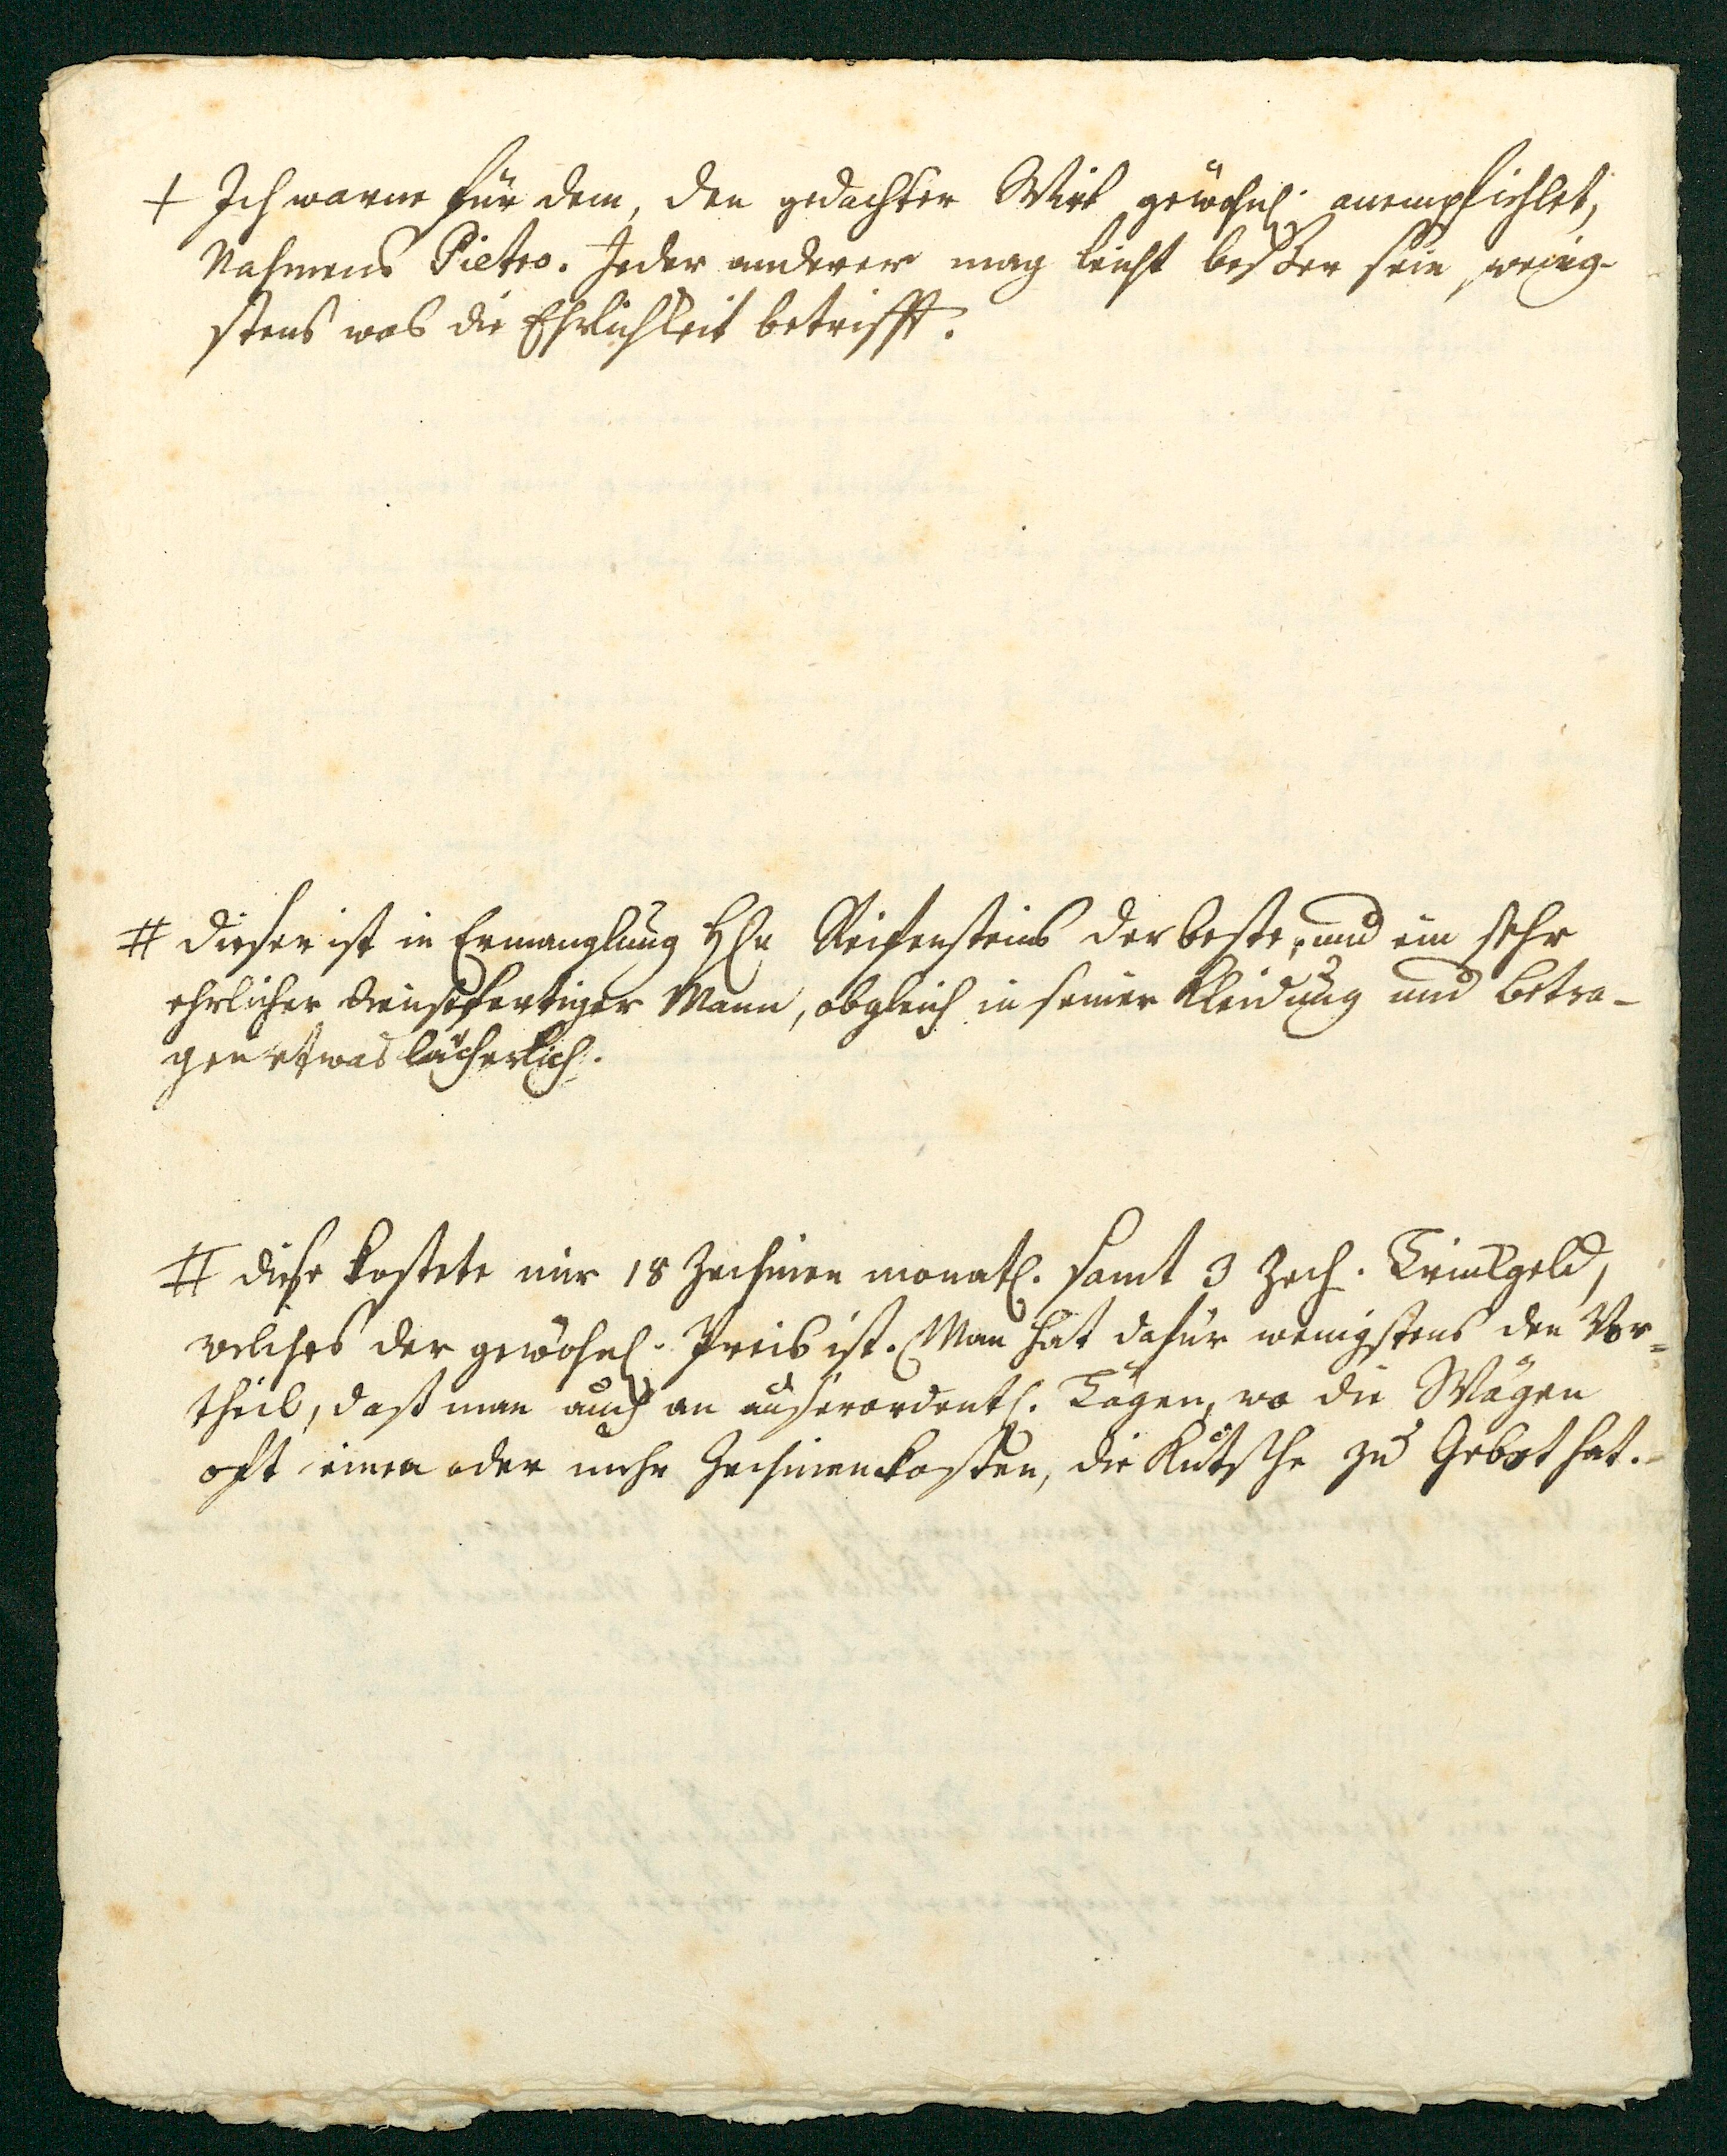 + Ich warne für dem, den gedachter Wirt gewöhnl. anempfiehlet,
Nahmens Pietro. Jeder anderer mag leicht beßer sein, wenig-
stens was die Ehrlichkeit betrifft.
# Dieser ist in Ermanglung HEn Reifensteins der beste, und ein sehr
ehrlicher dienstfertiger Mann, obgleich in seiner Kleidung und Betra-
gen etwas lächerlich.
# Diese kostete mir 18 Zechinen monatl. samt 3 Zech. Trinkgeld,
welches der gewöhnl. Preis ist. Man hat dafür wenigstens den Vor-
theil, daß man auch an außerordentl. Tägen, wo die Wägen
oft einen oder mehr Zechinen kosten, die Kutsche zu Gebot hat.